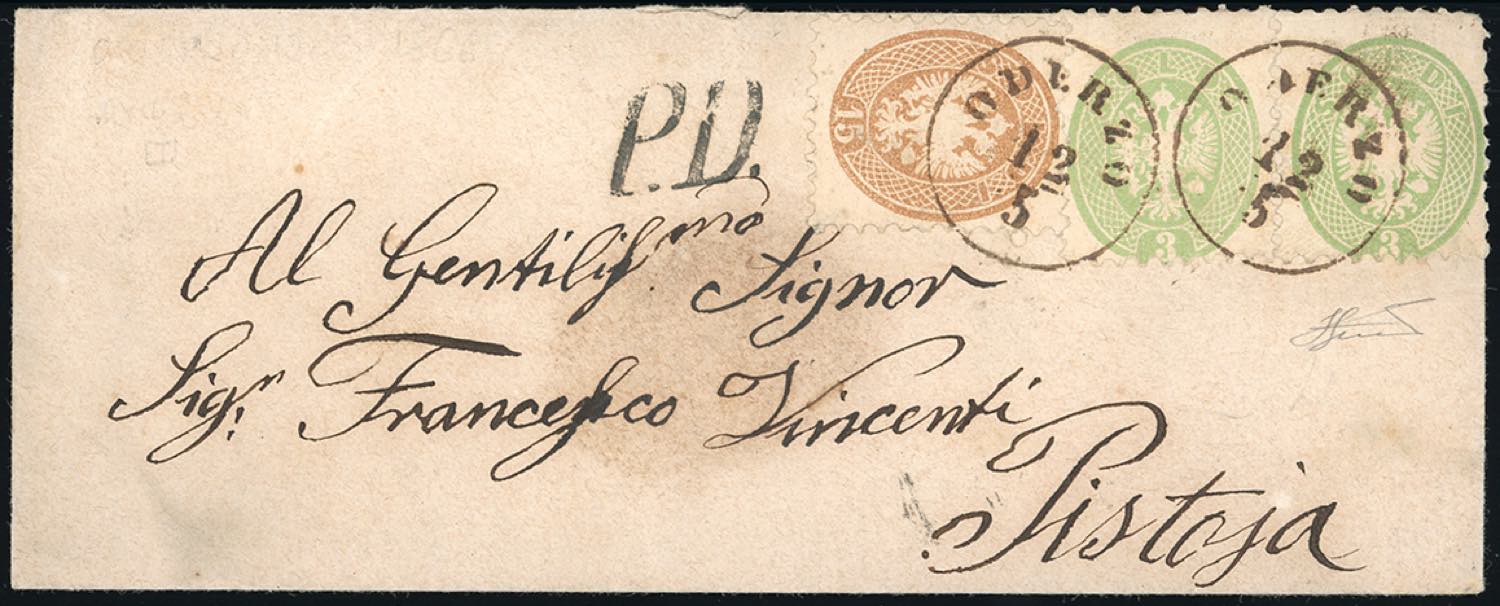 P.D.
15
ODERZO
12
5
3
ODERZO
12
5
3
Al Gentiliſ.mo Signor
Sig.r Francesco Vincenti
Pistoja